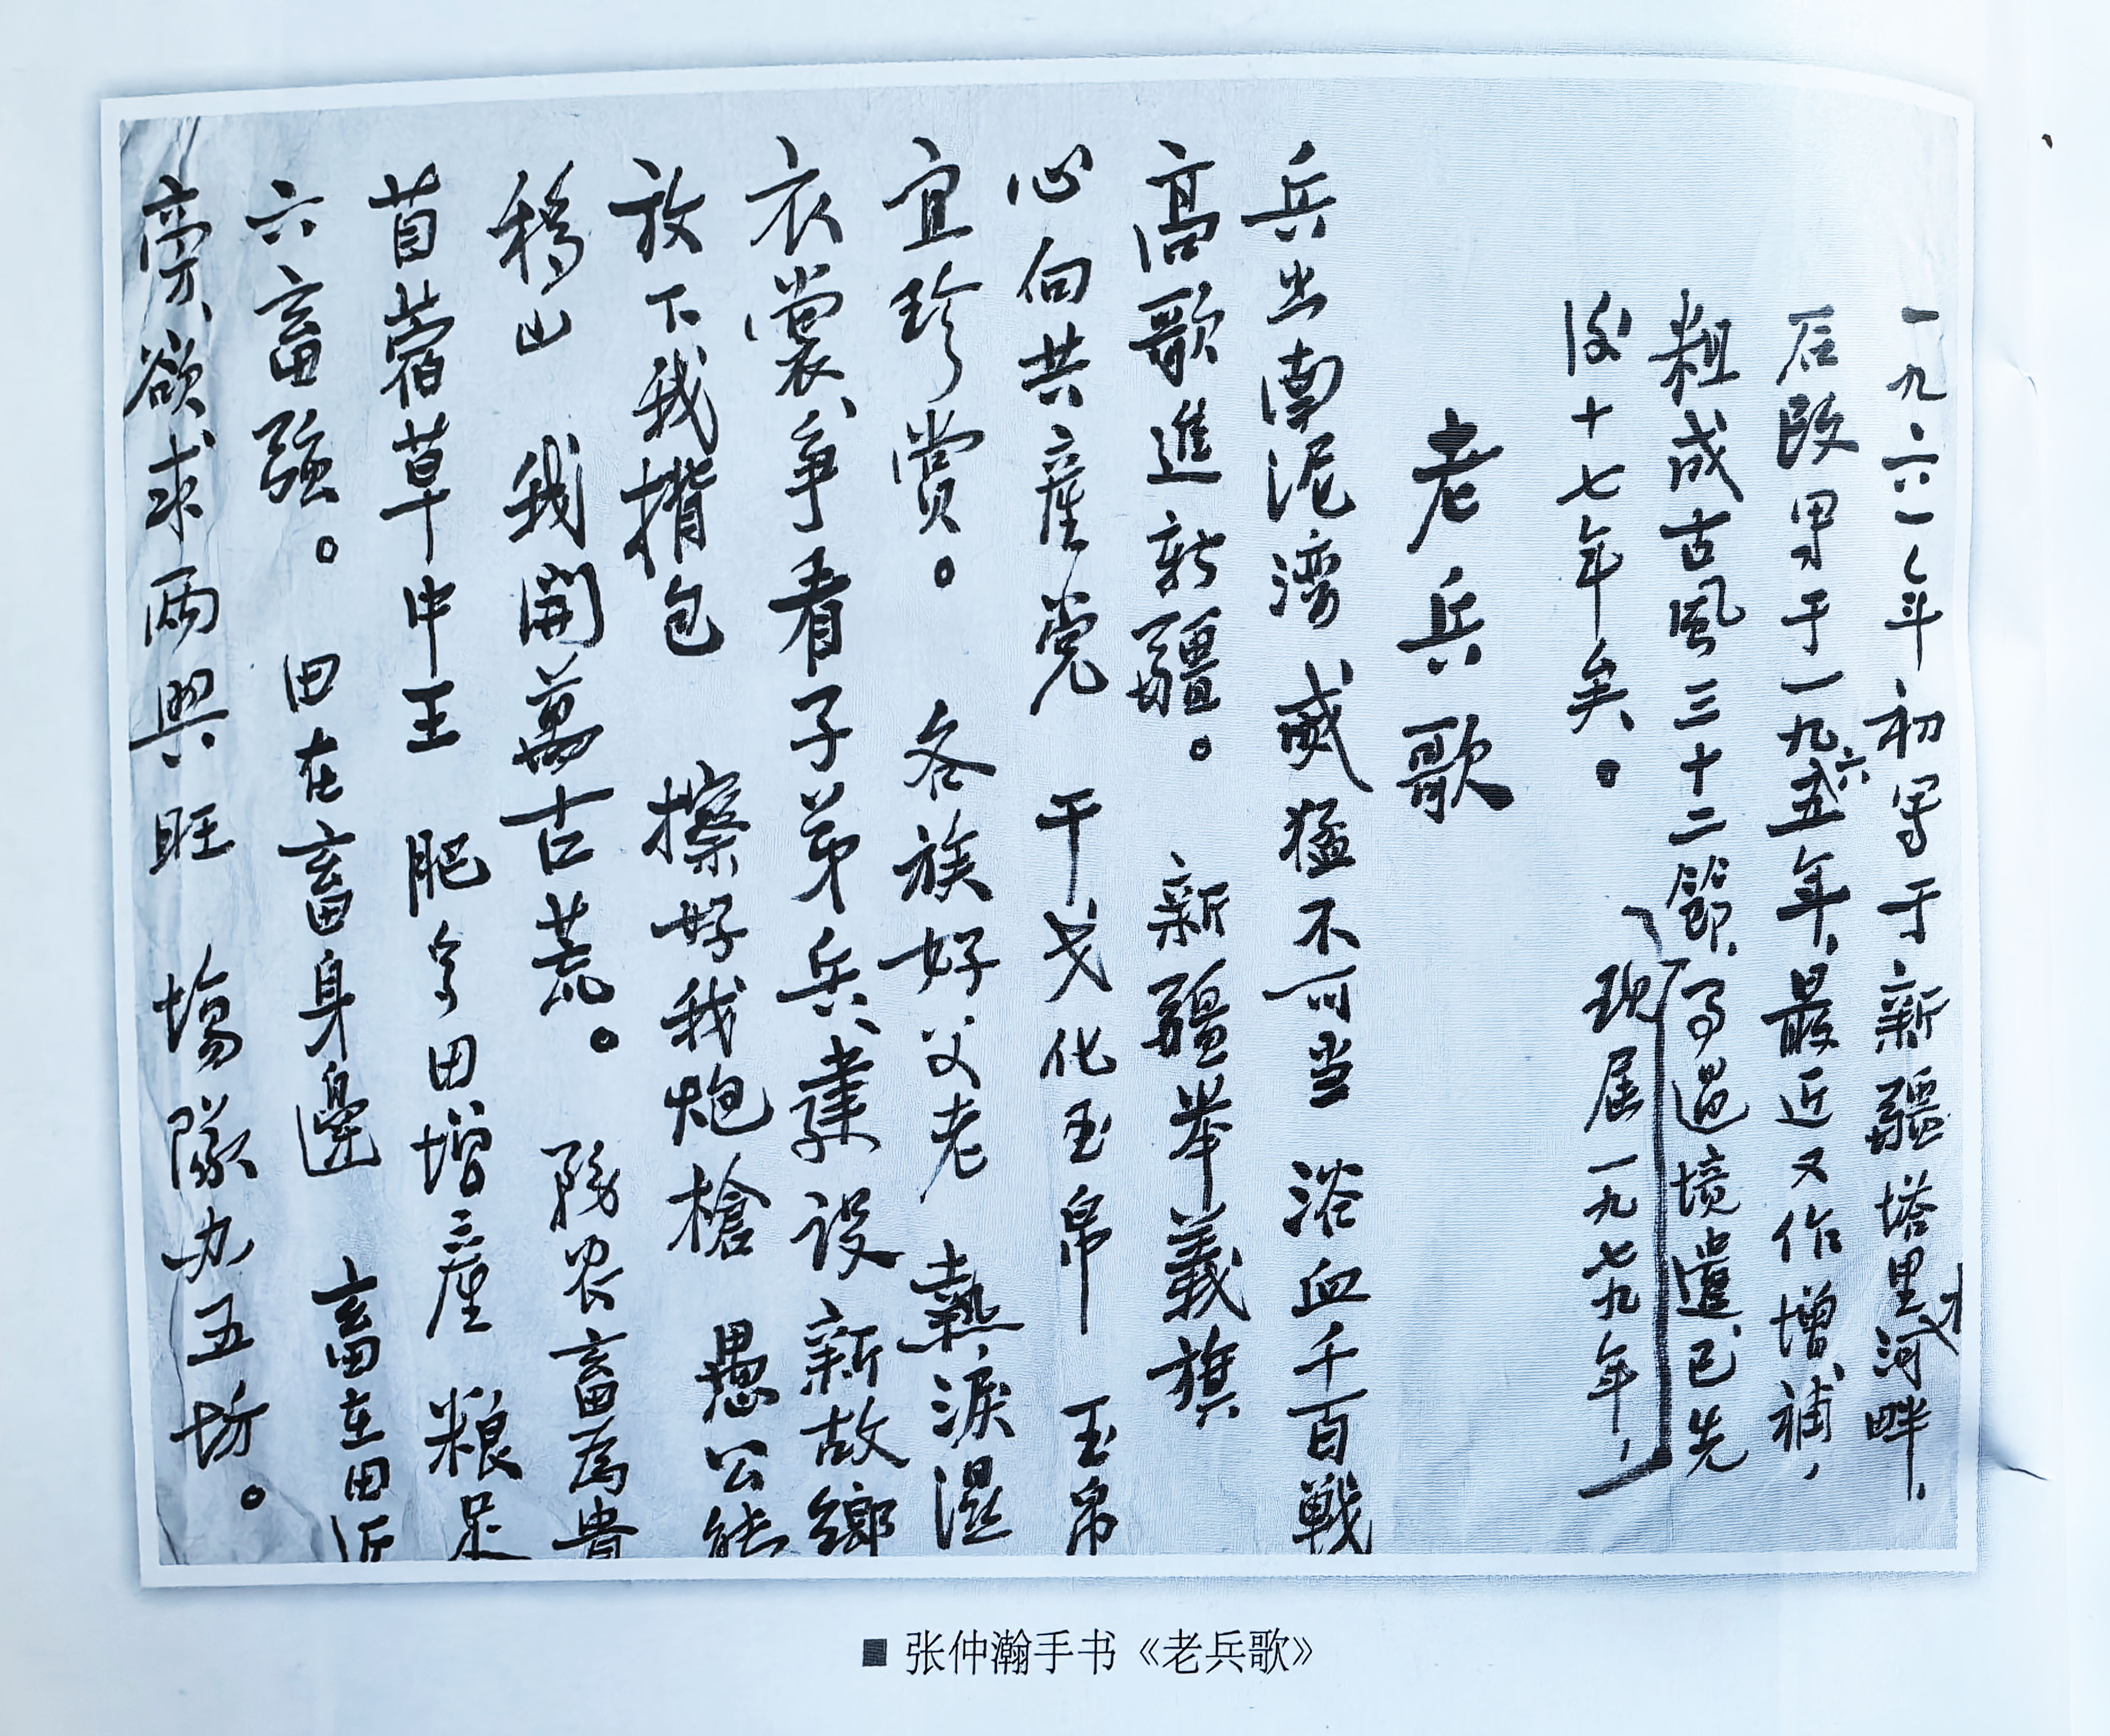 一九六一年初写于新疆塔里木河畔.
后改写于一九六五年,最近又作增補,
粗成古風三十二節,事過境遷,已先
後十七年矣。
现届一九七九年,
老兵歌
兵出南泥湾 威猛不可当 浴血千百戦
高歌進新疆。 新疆举義旗
心向共產党 干戈化玉帛 玉帛
宜珍賞。 各族好父老 熱淚濕
衣裳、争看子弟兵、建设新故鄉
放下我揹包 擦好我炮槍 愚公能
移山 我開萬古荒。 務农畜為貴
苜蓿草中王 肥多田增產 粮足
六畜強。 田在畜身邊 畜在田近
旁、欲求兩興旺 塲隊办五坊。
■ 张仲瀚手书《老兵歌》